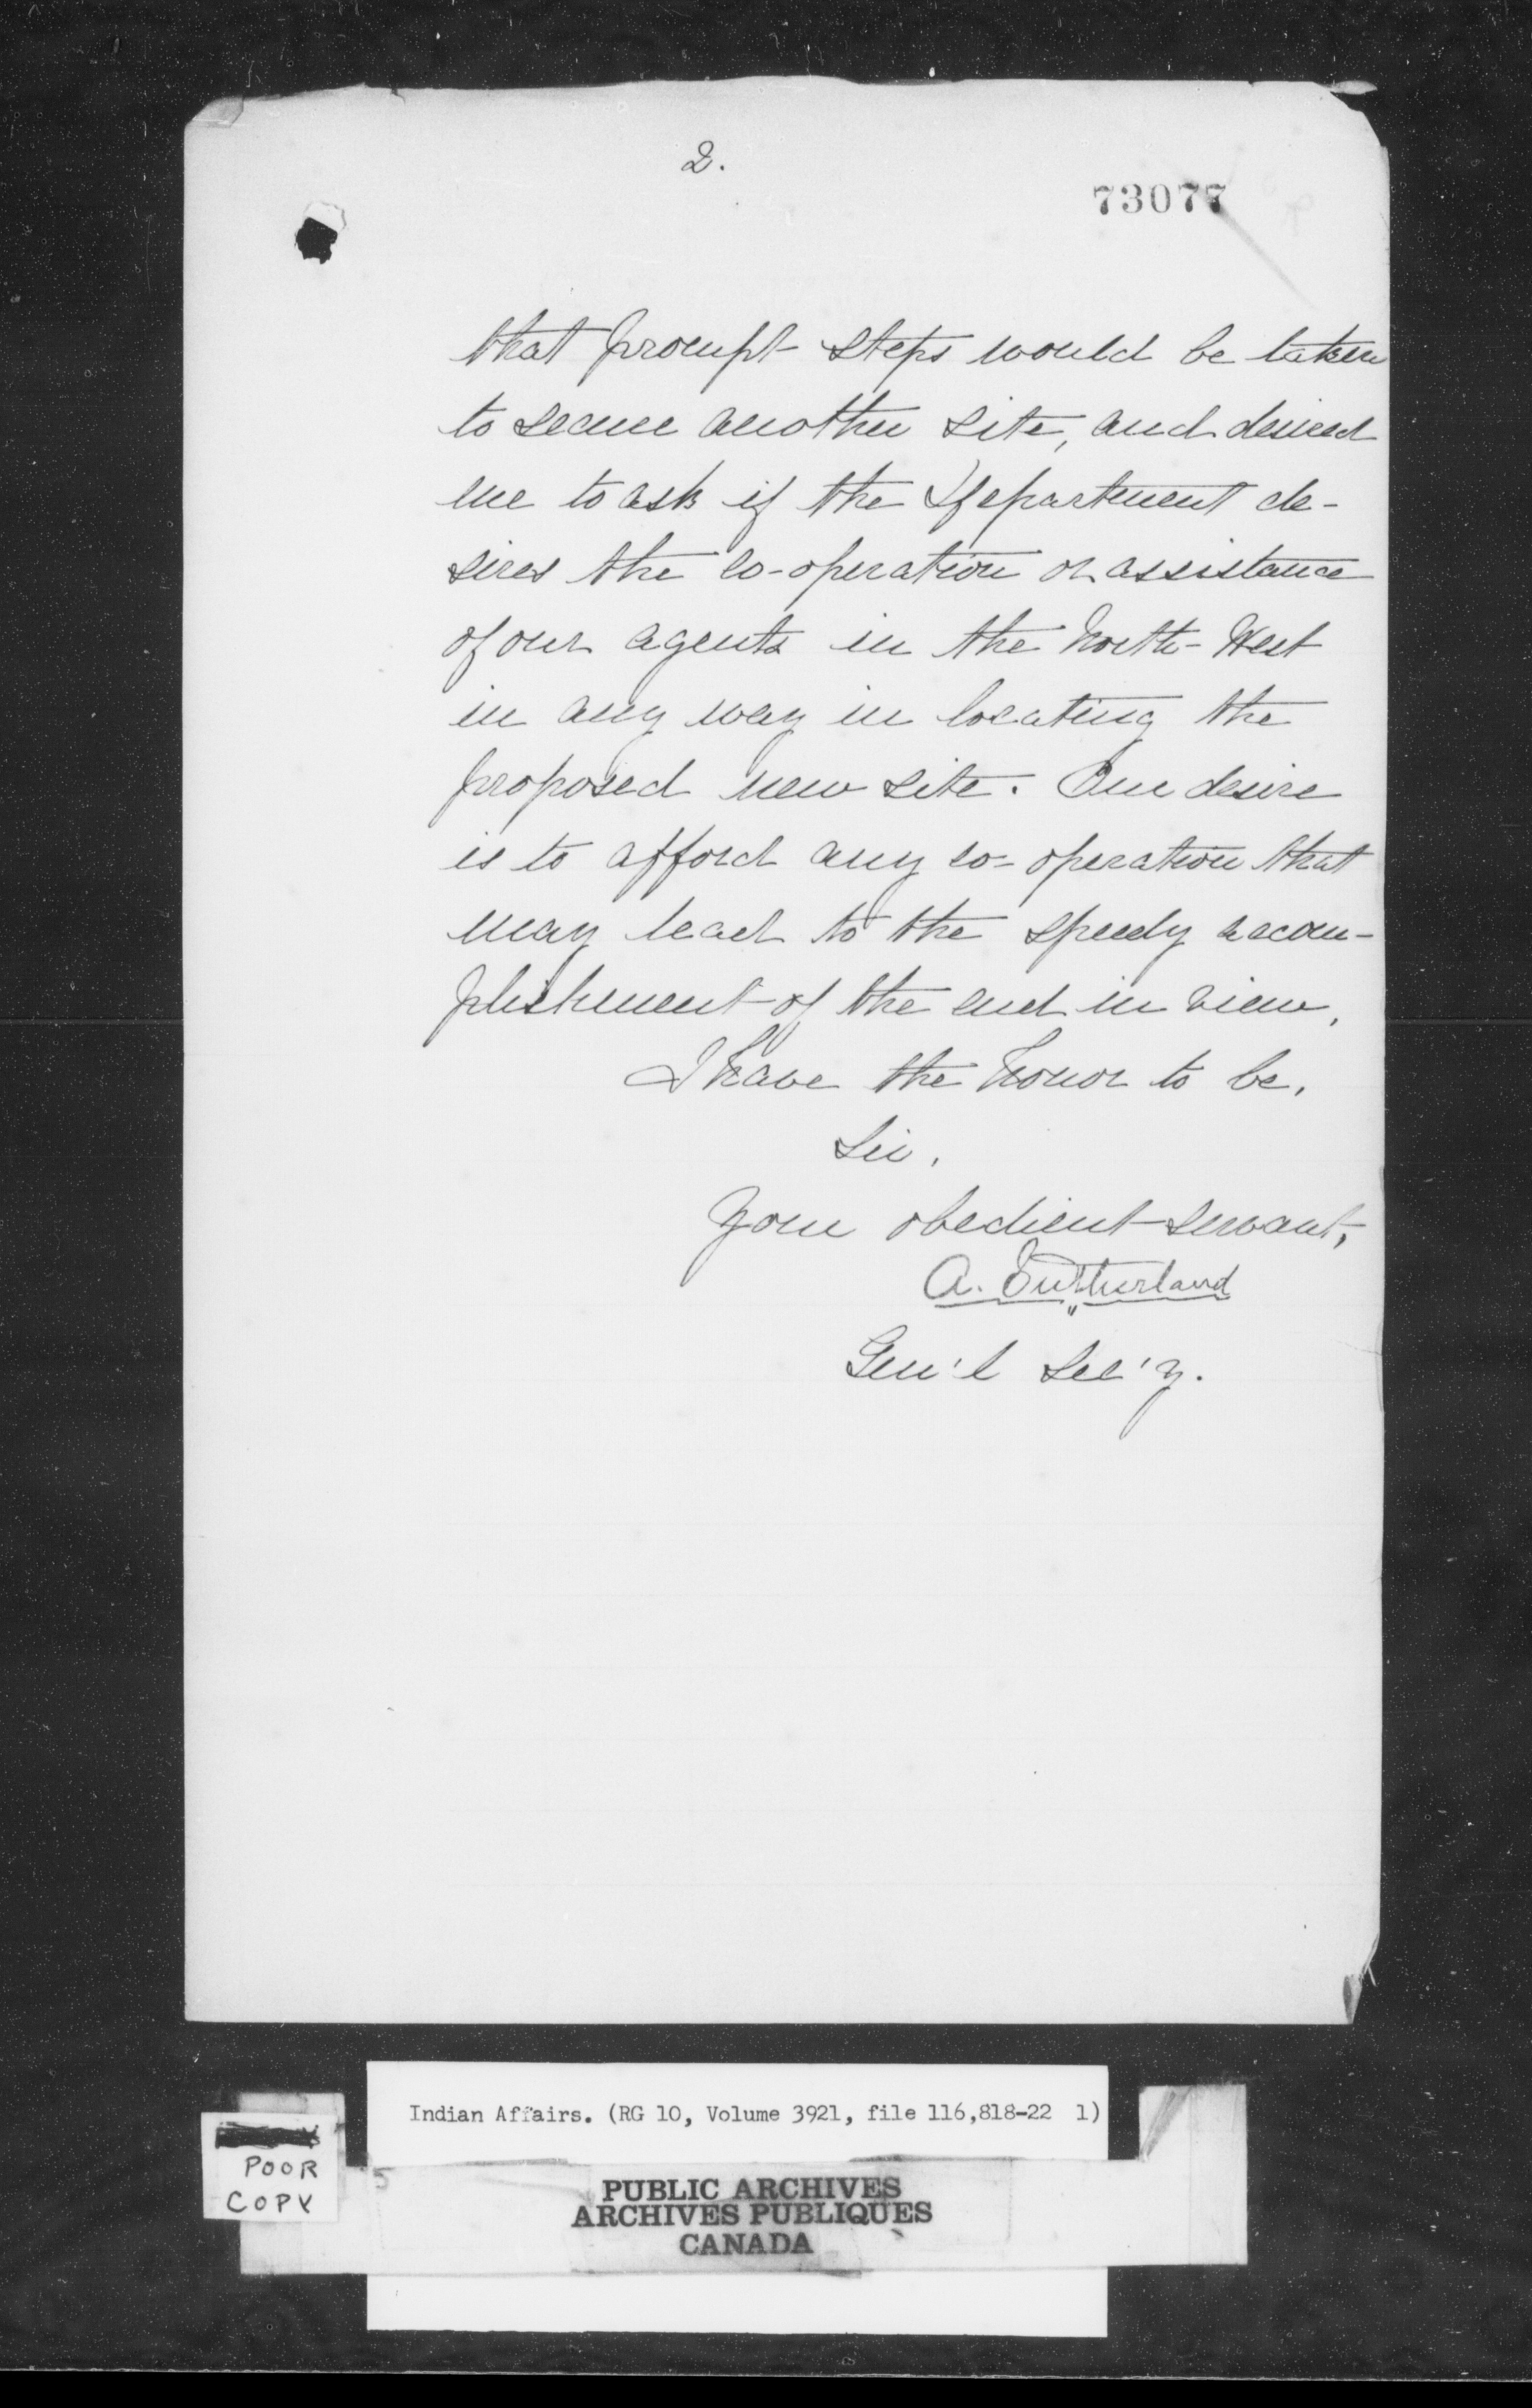 2.
73077
that prompt steps would be taken
to secure another site, and desired
me to ask if the Department de-
sires the co-operation or assistance
of our agents in the North-West
in any way in locating the
proposed new site. Our desire
is to afford any co-operation that
may lead to the speedy accom-
plishment of the end in view.
I have the honor to be,
Sir,
Your obedient servant,
A. Sutherland
Gen'l Sec'y.
Indian Affairs. (RG 10, Volume 3921, file 116,818-22 1)
POOR
COPY
PUBLIC ARCHIVES
ARCHIVES PUBLIQUES
CANADA